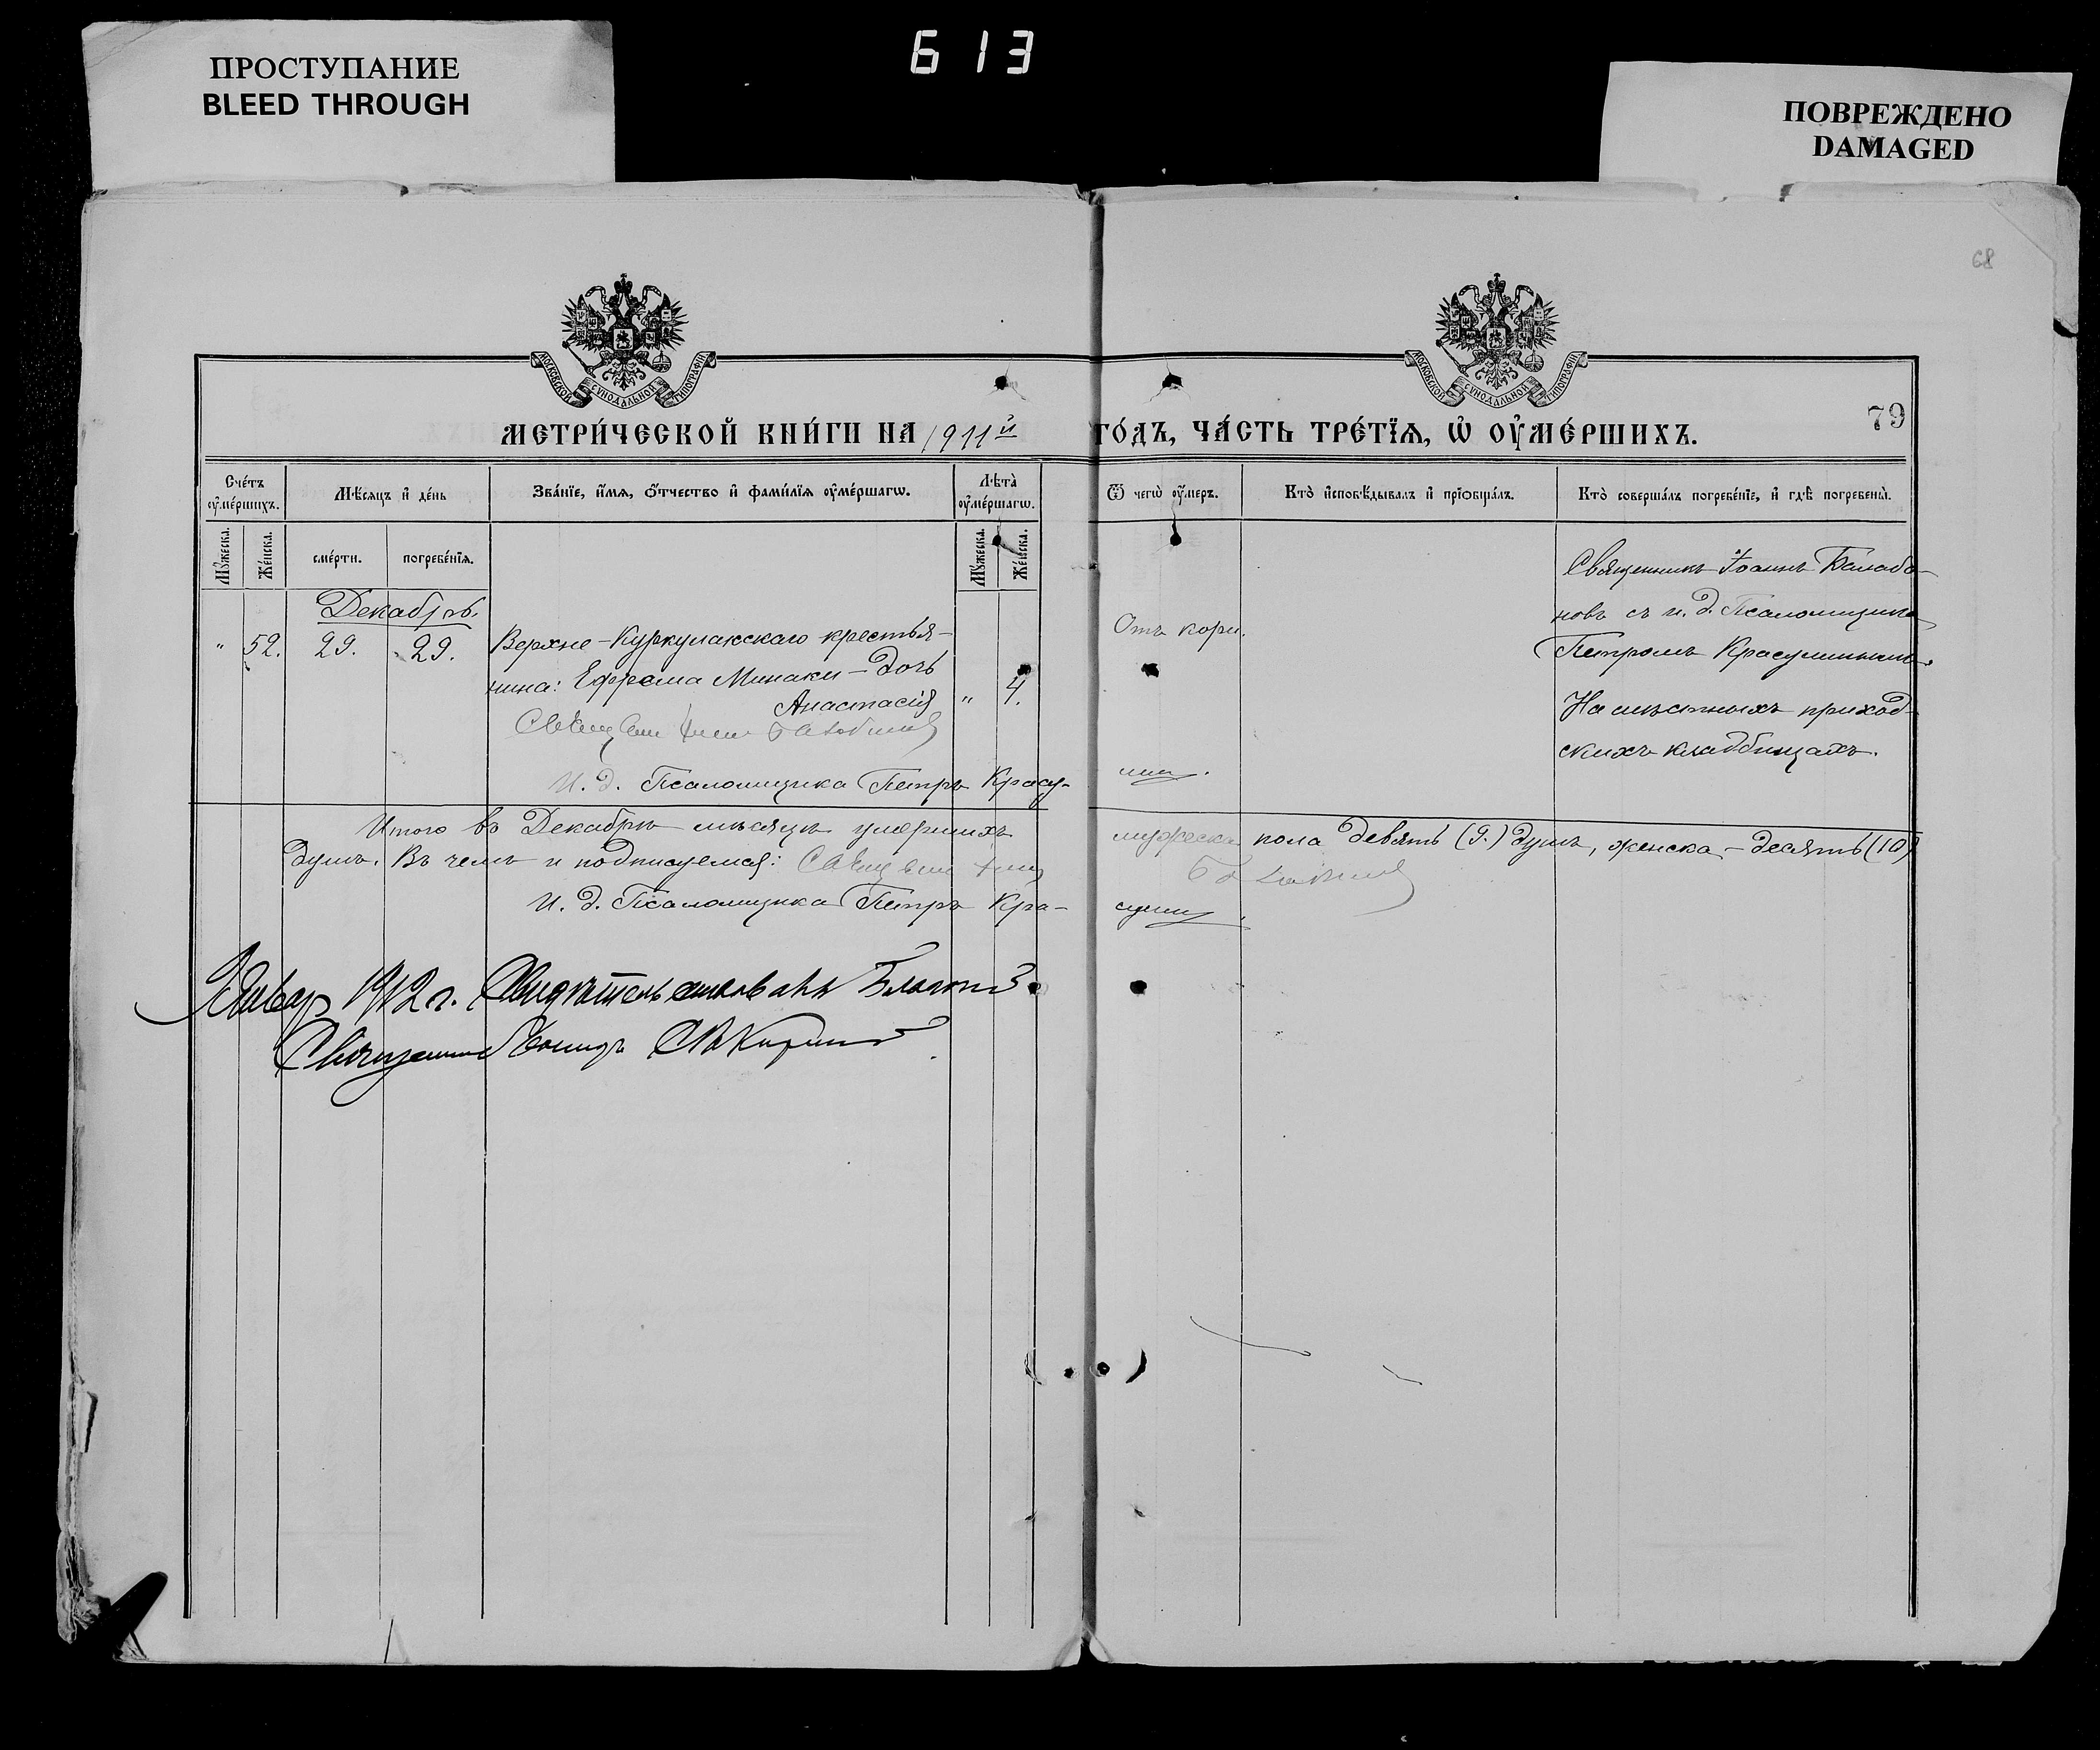 ПРОСТУПАНИЕ
BLEED THROUGH
613
ПОВРЕЖДЕНО
DAMAGED
68
МОСКОВСКОЙ СУНОДАЛЬНОЙ ТИПОГРАФІИ
МОСКОВСКОЙ СУНОДАЛЬНОЙ ТИПОГРАФІИ
79
МЕТРИ́ЧЕСКОЙ КНИ́ГИ НА 1911й ГО́ДЪ, ЧА́СТЬ ТРЕ́ТЇѦ, Ѡ ОУ҆МЕ́РШИХЪ.
Сче́тъ оу҆ме́ршихъ.
Мѣ́сѧцъ и҆ де́нь
Зва́нїе, и҆́мѧ, ѻ҆́тчество и҆ фами́лїѧ оу҆ме́ршагѡ.
Лѣта̀ оу҆ме́ршагѡ.
Ѿ чегѡ̀ оу҆́меръ.
Кто̀ и҆сповѣ́дывалъ и҆ прїѻбща́лъ.
Кто̀ соверша́лъ погребе́нїе, и҆ гдѣ̀ погребены̀.
Мꙋ́жеска.
Же́нска.
сме́рти.
погребе́нїѧ.
Мꙋ́жеска.
Же́нска.
Декабрь.
" 52. 29. 29. Верхне-Куркулакскаго крестья-
нина: Ефрема Минаки - дочь
Анастасія " 4.
Отъ кори.
Священникъ Іоаннъ Балаба-
новъ съ и. д. Псаломщика
Петромъ Красулинымъ.
На мѣстныхъ приход-
скихъ кладбищахъ.
И. д. Псаломщика Петръ Красу-
лин.
Итого въ Декабрѣ мѣсяцѣ умершихъ мужеска пола девять (9.) душъ, женска - десять (10)
душъ. Въ чемъ и подписуемся:
И. д. Псаломщика Петръ Кра-
сулин.
1912 г. Свидѣтельствовалъ Благоч.
Священник